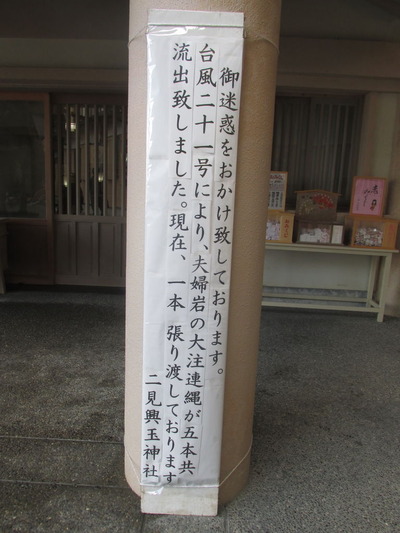 御迷惑をおかけ致しております。
台風二十一号により、夫婦岩の大注連縄が五本共
流出致しました。現在、一本 張り渡しております
二見興玉神社